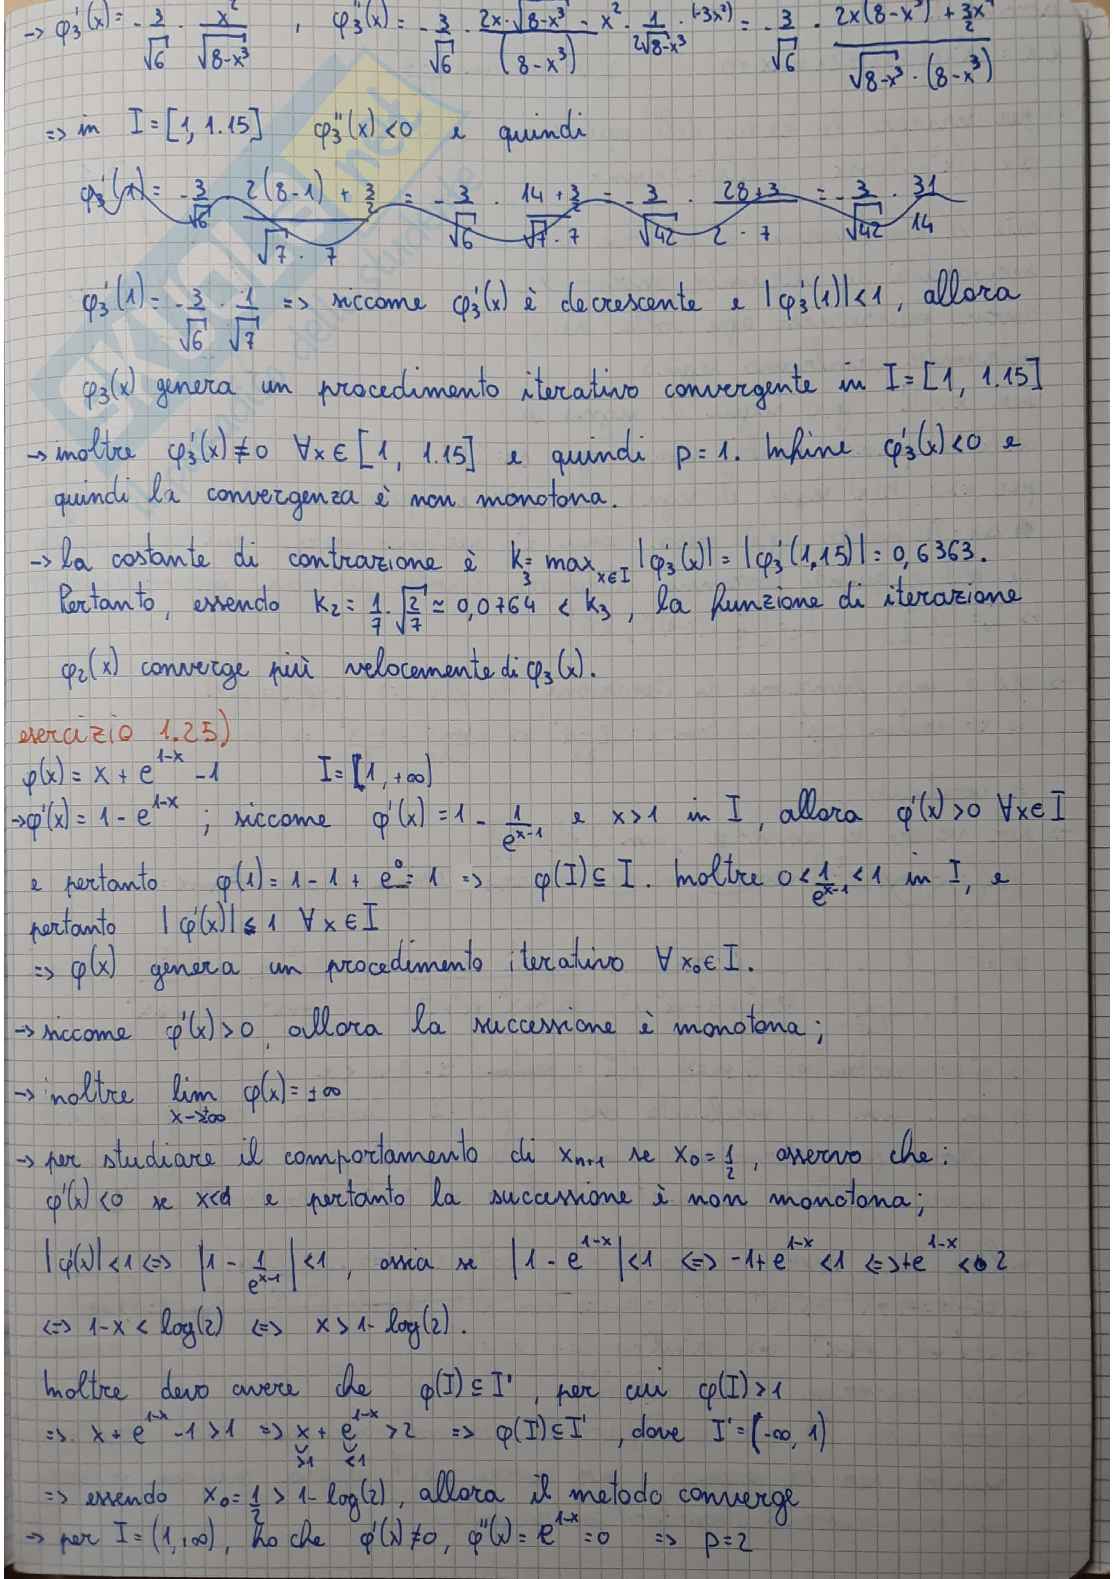 → φ₃'(x) = -3/√6 · x²/√(8-x³) , φ₃''(x) = -3/√6 · (2x·√(8-x³) - x² · 1/(2√(8-x³)) · (-3x²))/(8-x³) = -3/√6 · (2x(8-x³) + 3/2 x⁴)/(√(8-x³) · (8-x³))
=> in I = [1, 1.15] φ₃''(x) < 0 e quindi
φ₃'(x) = -3/√6 · (2(8-1) + 3/2)/(√7 · 7) = -3/√6 · (14 + 3/2)/(√7 · 7) = -3/√42 · (28+3)/(2 · 7) = -3/√42 · 31/14
φ₃'(1) = -3/√6 · 1/√7 => siccome φ₃'(x) è decrescente e |φ₃'(1)| < 1, allora
φ₃(x) genera un procedimento iterativo convergente in I = [1, 1.15]
→ inoltre φ₃'(x) ≠ 0 ∀x ∈ [1, 1.15] e quindi p = 1. Infine φ₃'(x) < 0 e
quindi la convergenza è non monotona.
→ la costante di contrazione è k₃ = max x∈I |φ₃'(x)| = |φ₃'(1,15)| = 0,6363.
Pertanto, essendo k₂ = 1/7 · √(2/7) ≃ 0,0764 < k₃, la funzione di iterazione
φ₂(x) converge più velocemente di φ₃(x).
esercizio 1.25)
φ(x) = x + e^(1-x) - 1 I = [1, +∞)
→ φ'(x) = 1 - e^(1-x) ; siccome φ'(x) = 1 - 1/e^(x-1) e x>1 in I, allora φ'(x) > 0 ∀x∈I
e pertanto φ(1) = 1 - 1 + e⁰ = 1 => φ(I) ⊆ I. Inoltre 0 < 1/e^(x-1) < 1 in I, e
pertanto |φ'(x)| ≤ 1 ∀x ∈ I
=> φ(x) genera un procedimento iterativo ∀x₀ ∈ I.
→ siccome φ'(x) > 0, allora la successione è monotona;
→ inoltre lim x→±∞ φ(x) = ±∞
→ per studiare il comportamento di xₙ₊₁ se x₀ = 1/2, osservo che:
φ'(x) < 0 se x<1 e pertanto la successione è non monotona;
|φ'(x)| < 1 <=> |1 - 1/e^(x-1)| < 1, ossia se |1 - e^(1-x)| < 1 <=> -1 + e^(1-x) < 1 <=> +e^(1-x) < 2
<=> 1-x < log(2) <=> x > 1 - log(2).
Inoltre devo avere che φ(I) ⊆ I', per cui φ(I) > 1
=> x + e^(1-x) - 1 > 1 => x + e^(1-x) > 2 => φ(I') ⊆ I', dove I' = (-∞, 1)
>1 <1
=> essendo x₀ = 1/2 > 1 - log(2), allora il metodo converge
→ per I = (1, +∞), ho che φ'(x) ≠ 0, φ''(x) = e^(1-x) = 0 => p = 2